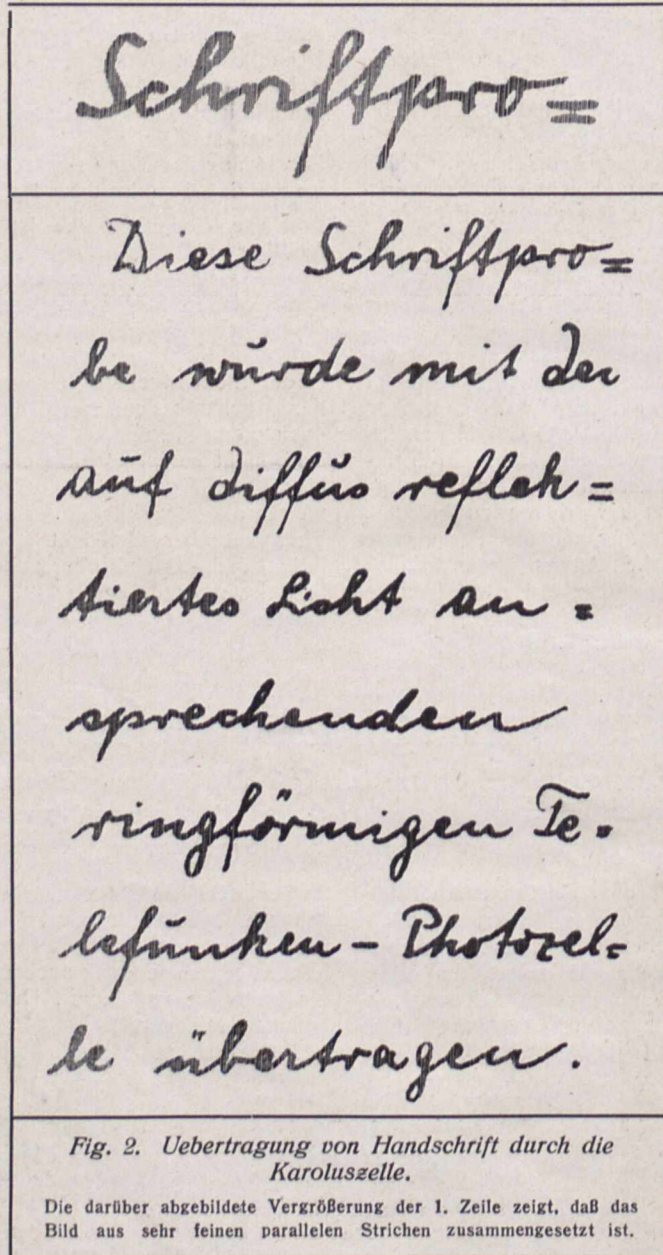 Schriftpro=
Diese Schriftpro=
be wurde mit der
auf diffus reflek=
tiertes Licht an=
sprechenden
ringförmigen Te-
lefunken - Photozel=
le übertragen.
Fig. 2. Uebertragung von Handschrift durch die
Karoluszelle.
Die darüber abgebildete Vergrößerung der 1. Zeile zeigt, daß das
Bild aus sehr feinen parallelen Strichen zusammengesetzt ist.